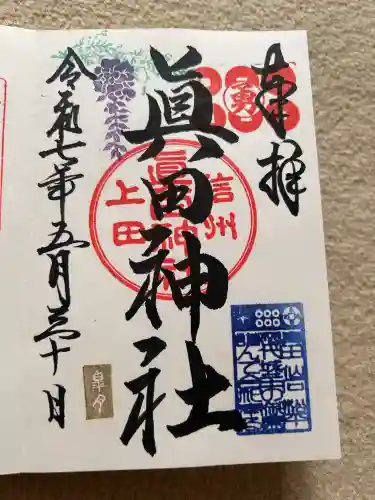 奉拝
勇
眞田神社
信州
眞田神社
上田
令和七年五月三十日
皐月